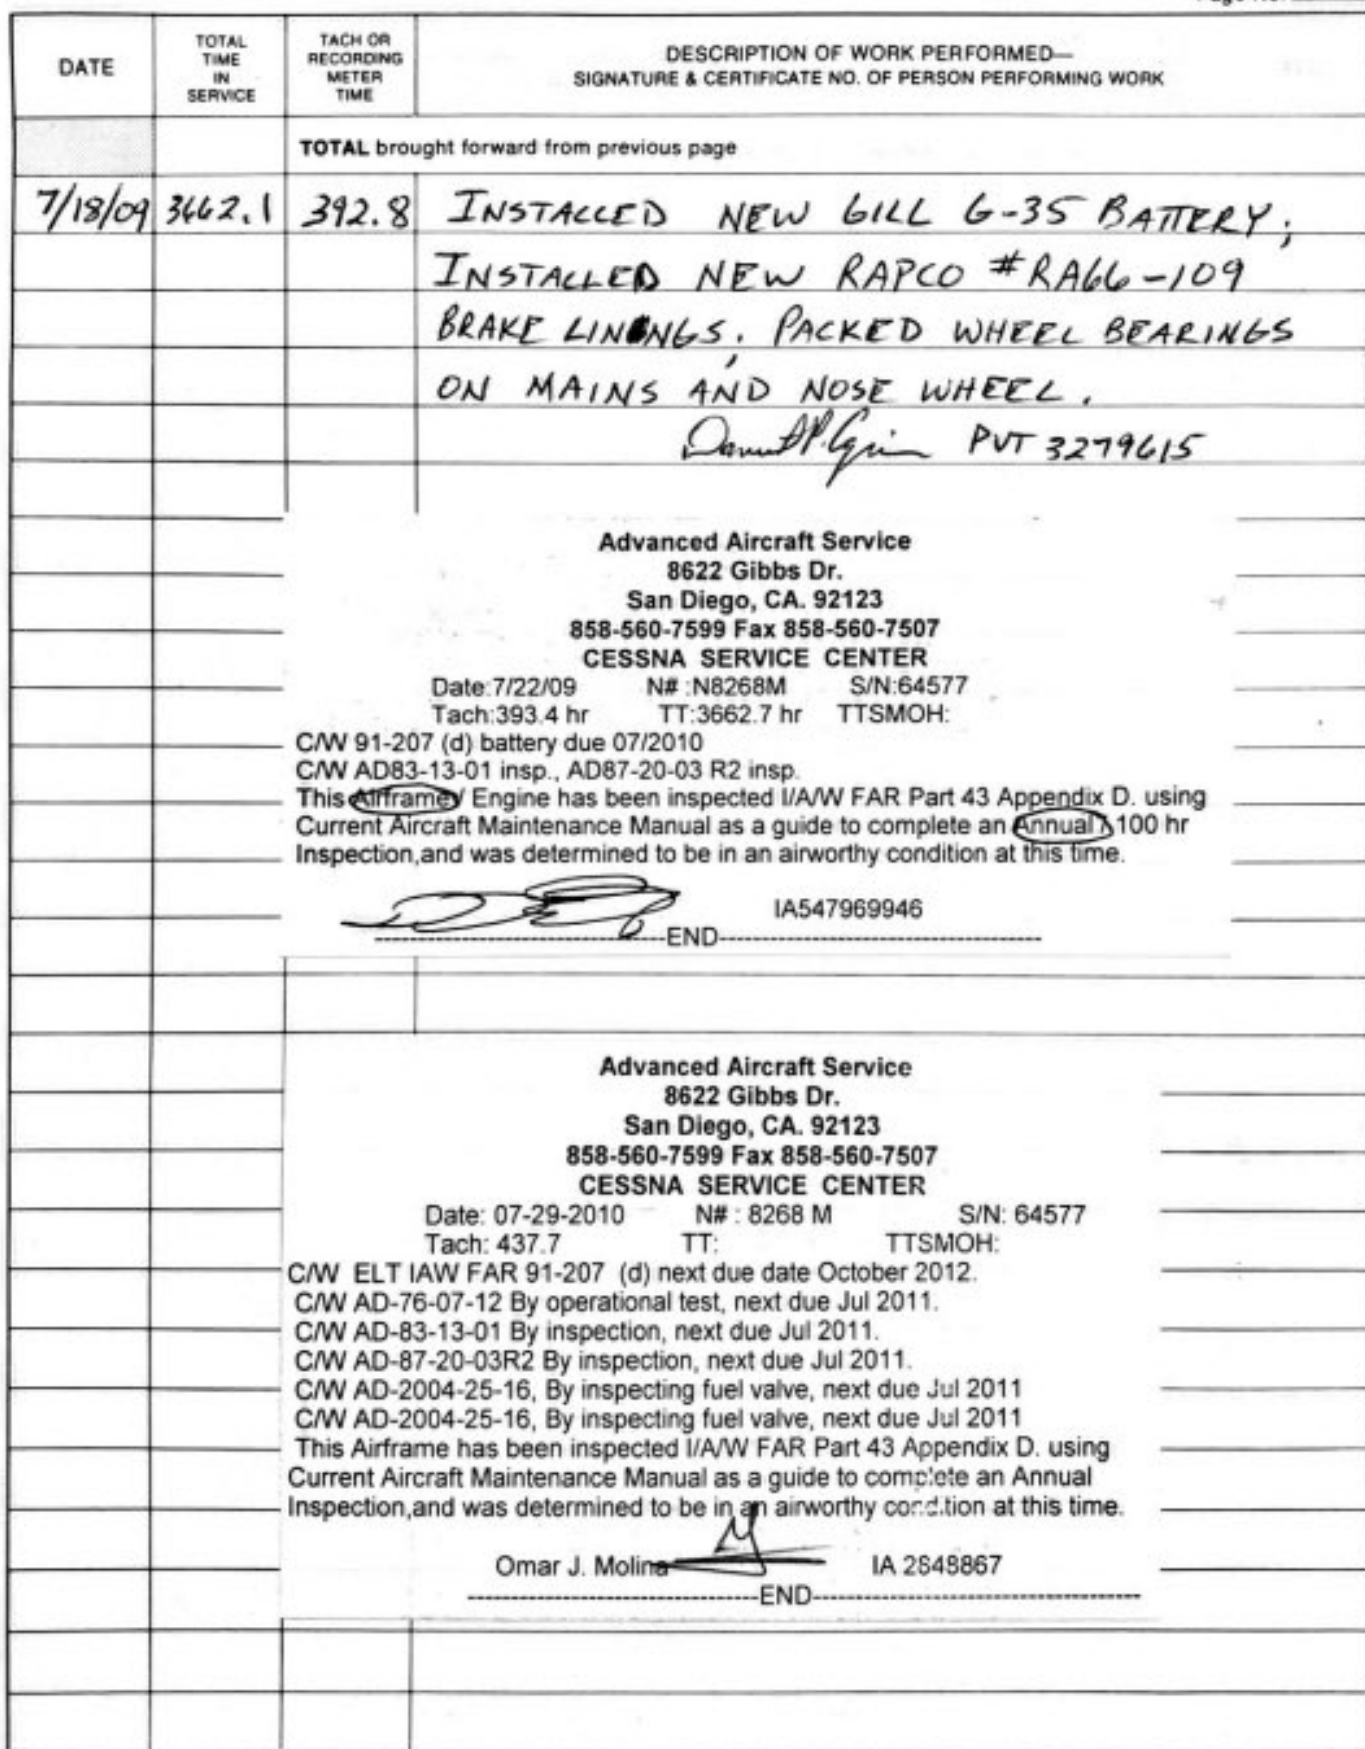 DATE
TOTAL TIME IN SERVICE
TACH OR RECORDING METER TIME
DESCRIPTION OF WORK PERFORMED—
SIGNATURE & CERTIFICATE NO. OF PERSON PERFORMING WORK
TOTAL brought forward from previous page
7/18/09 3662.1 392.8 INSTALLED NEW GILL G-35 BATTERY;
INSTALLED NEW RAPCO #RA66-109
BRAKE LININGS; PACKED WHEEL BEARINGS
ON MAINS AND NOSE WHEEL.
PVT 3279615
Advanced Aircraft Service
8622 Gibbs Dr.
San Diego, CA. 92123
858-560-7599 Fax 858-560-7507
CESSNA SERVICE CENTER
Date:7/22/09 N# :N8268M S/N:64577
Tach:393.4 hr TT:3662.7 hr TTSMOH:
C/W 91-207 (d) battery due 07/2010
C/W AD83-13-01 insp., AD87-20-03 R2 insp.
This Airframe/ Engine has been inspected I/A/W FAR Part 43 Appendix D. using
Current Aircraft Maintenance Manual as a guide to complete an Annual / 100 hr
Inspection,and was determined to be in an airworthy condition at this time.
IA547969946
END
Advanced Aircraft Service
8622 Gibbs Dr.
San Diego, CA. 92123
858-560-7599 Fax 858-560-7507
CESSNA SERVICE CENTER
Date: 07-29-2010 N# : 8268 M S/N: 64577
Tach: 437.7 TT: TTSMOH:
C/W ELT IAW FAR 91-207 (d) next due date October 2012.
C/W AD-76-07-12 By operational test, next due Jul 2011.
C/W AD-83-13-01 By inspection, next due Jul 2011.
C/W AD-87-20-03R2 By inspection, next due Jul 2011.
C/W AD-2004-25-16, By inspecting fuel valve, next due Jul 2011
C/W AD-2004-25-16, By inspecting fuel valve, next due Jul 2011
This Airframe has been inspected I/A/W FAR Part 43 Appendix D. using
Current Aircraft Maintenance Manual as a guide to complete an Annual
Inspection,and was determined to be in an airworthy condition at this time.
Omar J. Molina IA 2848867
END